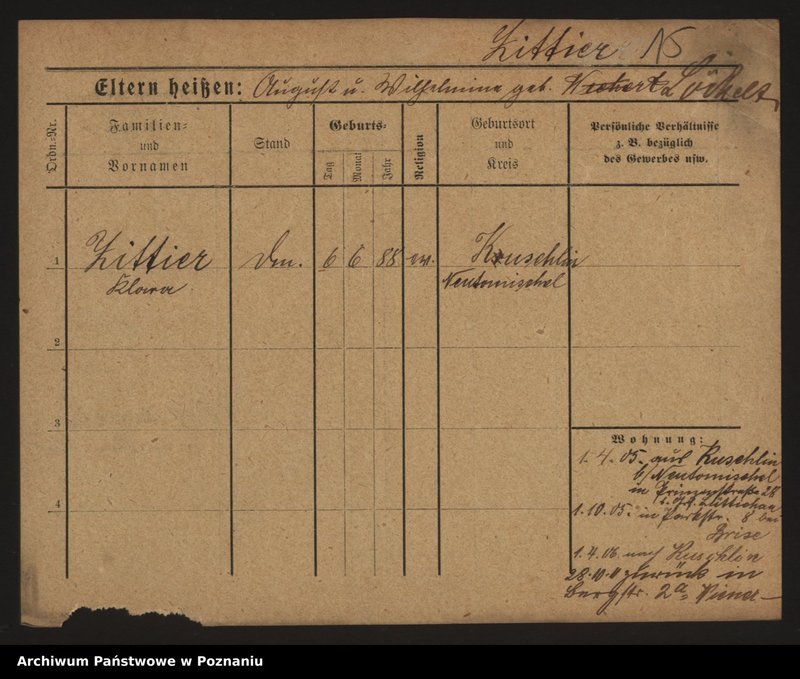 Zittier
Eltern heißen: August u. Wilhelmina geb.
Ordn.-Nr.
Familien-
und
Vornamen
Stand
Geburts-
Tag
Monat
Jahr
Religion
Geburtsort
und
Kreis
Persönliche Verhältnisse
z. B. bezüglich
des Gewerbes usw.
1 Zittier Dm. 6 6 88 ev. Kuschlin
Klara Neutomischel
2
3
4
Wohnung:
1. 4. 05. aus Kuschlin
b/ Neutomischel
in Prinzenstraße 28
1. 10. 05. in Parkstr. 8 bei
Brise
1. 4. 06 nach Kuschlin
zurück in
Bergstr. 2a
Archiwum Państwowe w Poznaniu